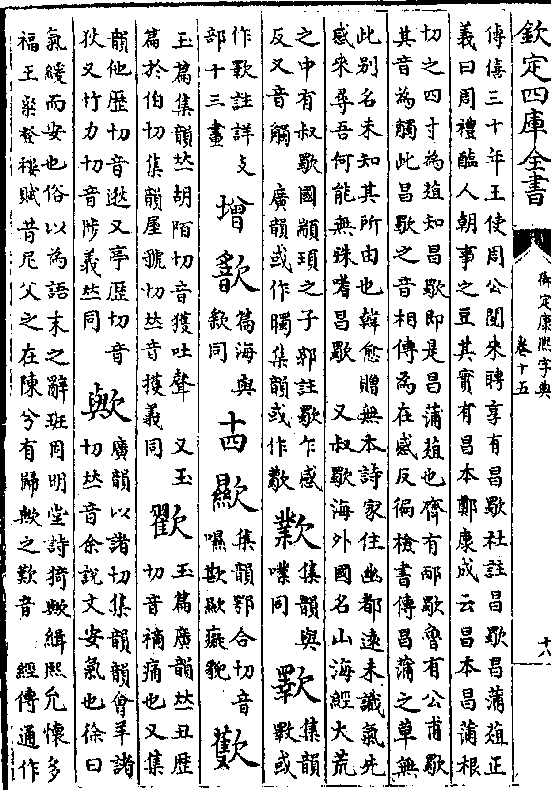 欽定四庫全書
御定康熙字典
卷十五
十八
傳僖三十年王使周公閱來聘享有昌歜杜註昌歜昌蒲葅正
義曰周禮醢人朝事之豆其實有昌本鄭康成云昌本昌蒲根
切之四寸為葅知昌歜即是昌蒲葅也齊有邴歜魯有公甫歜
其音為觸此昌歜之音相傳為在感反徧檢書傳昌蒲之草無
此别名未知其所由也韓愈贈無本詩家住幽都遠未識氣先
感來尋吾何能無殊嗜昌歜 又叔歜海外國名山海經大荒
之中有叔歜國顓頊之子郭註歜乍感
反又音觸 廣韻或作臅集韻或作
集韻與
同
歝
集韻
斁或
作歝註詳攴
部十三畫
增
篇海與
款同
十四
集韻鄂合切音
欺癡貌
玉篇集韻𠀤胡陌切音獲吐聲 又玉
篇於伯切集韻屋虢切𠀤音擭義同
玉篇廣韻𠀤丑歷
切音禘痛也又集
韻他歷切音逖又亭歷切音
狄又竹力切音陟義𠀤同
歟
廣韻以諸切集韻韻會羊諸
切𠀤音余說文安氣也徐曰
氣緩而安也俗以為語末之辭班固明堂詩猗歟緝熙允懷多
福王粲登樓賦昔尼父之在陳兮有歸歟之歎音 經傳通作